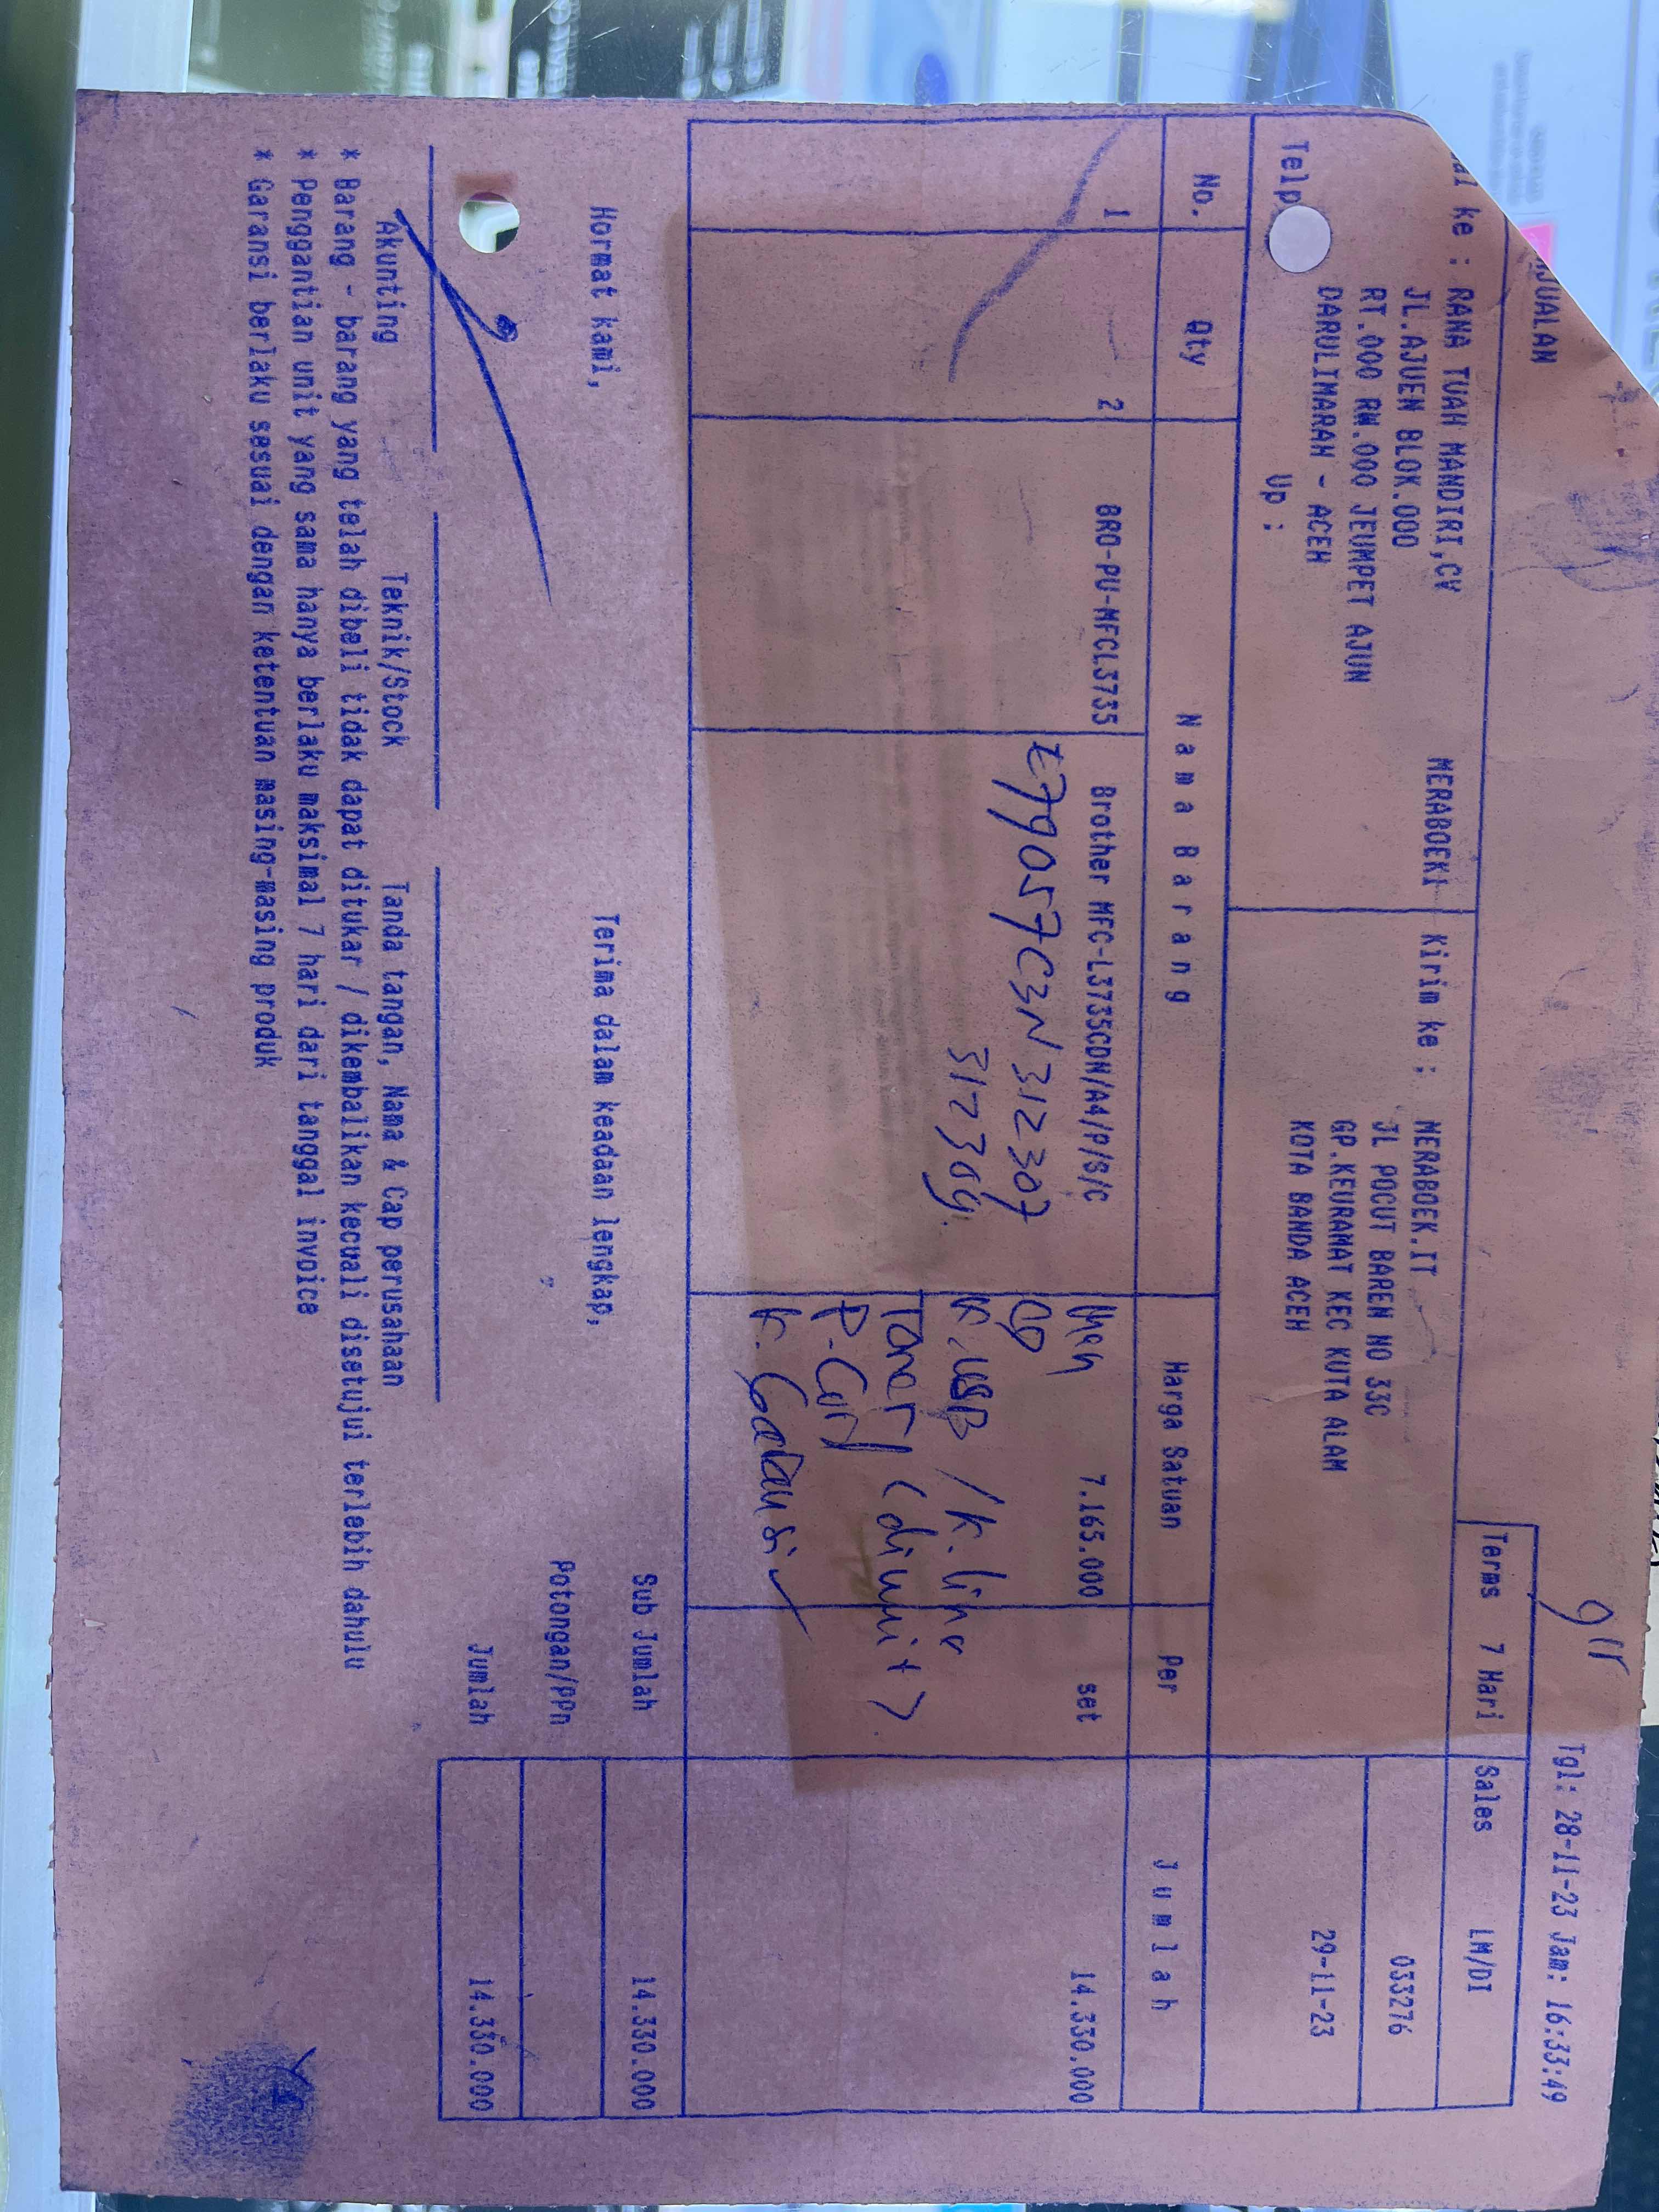 JUALAN
Tgl: 28-11-23 Jam: 16:33:49
ke : RANA TUAH MANDIRI,CV
JL.AJUEN BLOK.000
RT.000 RW.000 JEUMPET AJUN
DARULIMARAH - ACEH
Telp
Up :
MERABOEKI
Kirim ke : MERABOEK.IT
JL POCUT BAREN NO 33C
GP.KEURAMAT KEC KUTA ALAM
KOTA BANDA ACEH
Terms 7 Hari
Sales LM/DI
033276
29-11-23
No. Qty Nama Barang Harga Satuan Per Jumlah
1 2 BRO-PU-MFCL3735 Brother MFC-L3735CDN/A4/P/S/C 7.165.000 set 14.330.000
E79057C3N312307
Man
CD
K.USB / K.line
Toner (diunit).
P.Cord
K. Garansi ✓
Hormat kami,
Terima dalam keadaan lengkap,
Sub Jumlah 14.330.000
Potongan/PPn
Jumlah 14.330.000
Akunting Teknik/Stock Tanda tangan, Nama & Cap perusahaan
* Barang - barang yang telah dibeli tidak dapat ditukar / dikembalikan kecuali disetujui terlebih dahulu
* Penggantian unit yang sama hanya berlaku maksimal 7 hari dari tanggal invoice
* Garansi berlaku sesuai dengan ketentuan masing-masing produk